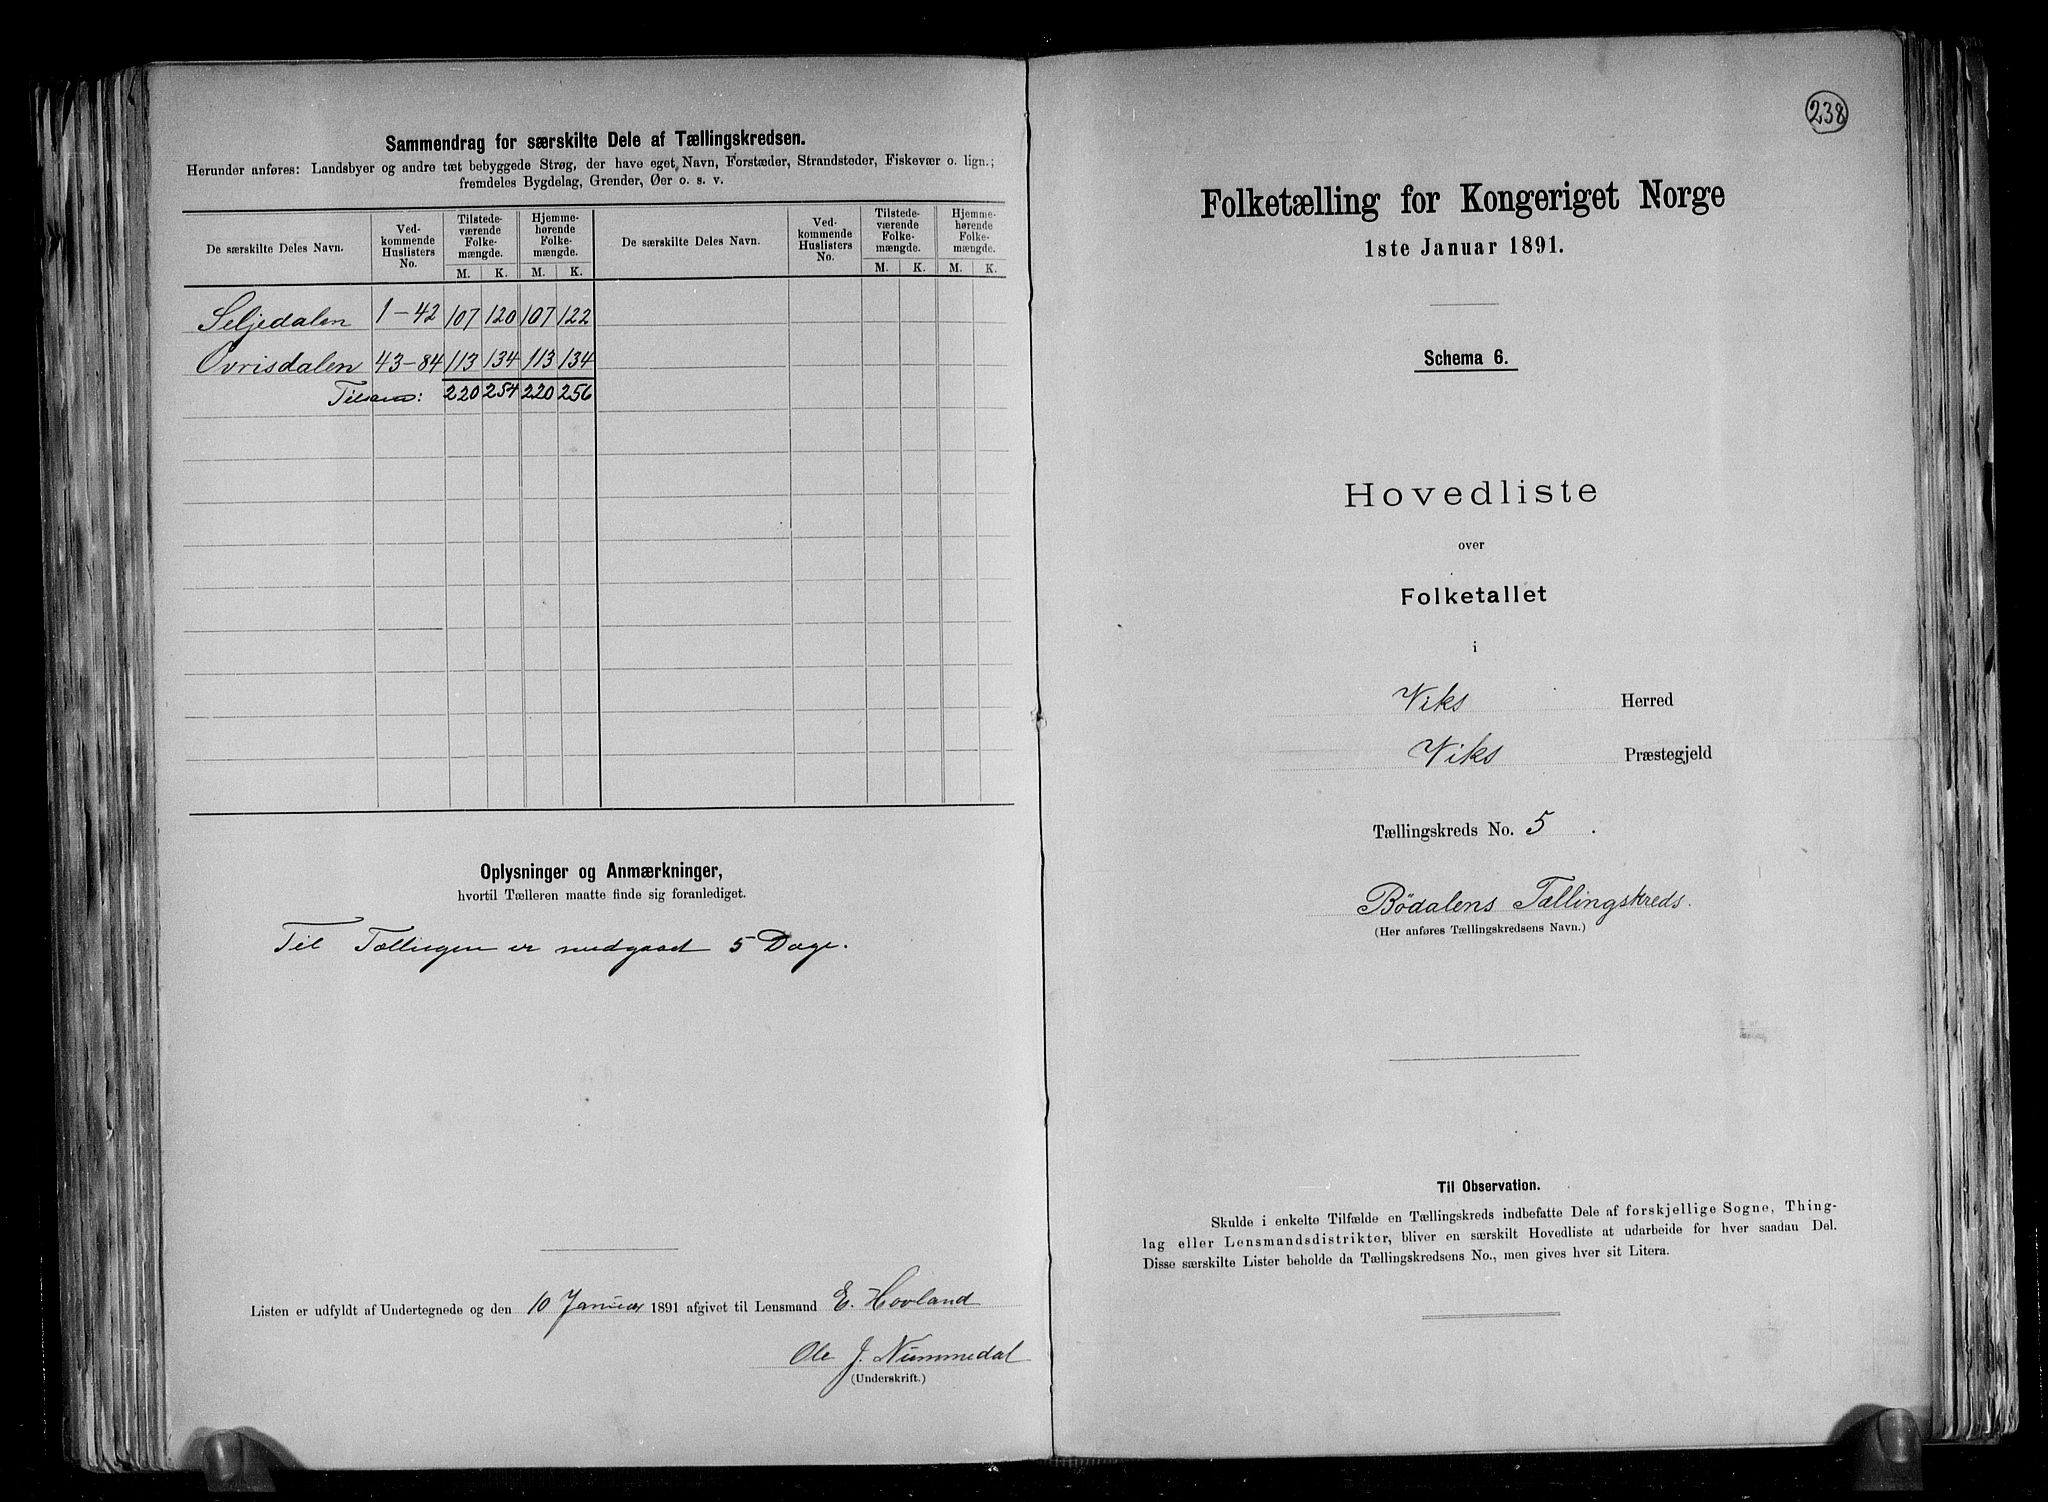 Sammendrag for særskilte Dele af Tællingskredsen.
Herunder anføres: Landsbyer og andre tæt bebyggede Strøg, der have eget Navn, Forstæder, Strandsteder, Fiskevær o. lign.;
fremdeles Bygdelag, Grender, Øer o. s. v.
De særskilte Deles Navn. Ved-kommende Huslisters No. Tilstede-værende Folke-mængde. Hjemme-hørende Folke-mængde. De særskilte Deles Navn. Ved-kommende Huslisters No. Tilstede-værende Folke-mængde. Hjemme-hørende Folke-mængde.
M. K. M. K. M. K. M. K.
Seljedalen 1-42 107 120 107 122
Ovrisdalen 43-84 113 134 113 134
Tilsam: 220 254 220 256
Oplysninger og Anmærkninger,
hvortil Tælleren maatte finde sig foranlediget.
Til Tællingen er medgaaet 5 Dage.
Listen er udfyldt af Undertegnede og den 10 Januar 1891 afgivet til Lensmand E. Hovland
Ole J. Nummedal
(Underskrift.)
238
Folketælling for Kongeriget Norge
1ste Januar 1891.
Schema 6.
Hovedliste
over
Folketallet
i
Viks Herred
Viks Præstegjeld
Tællingskreds No. 5.
Bödalens Tællingskreds.
(Her anføres Tællingskredsens Navn.)
Til Observation.
Skulde i enkelte Tilfælde en Tællingskreds indbefatte Dele af forskjellige Sogne, Thing-
lag eller Lensmandsdistrikter, bliver en særskilt Hovedliste at udarbeide for hver saadan Del.
Disse særskilte Lister beholde da Tællingskredsens No., men gives hver sit Litera.